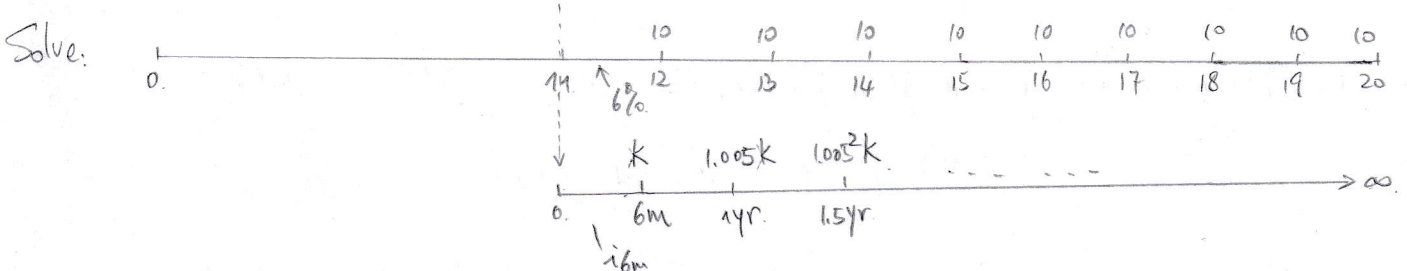 10 10 10 10 10 10 10 10 10
Solve:
0. 11 12 13 14 15 16 17 18 19 20
6%
K 1.005K 1.005²K
∞.
0. 6m 1yr. 1.5yr
i6m